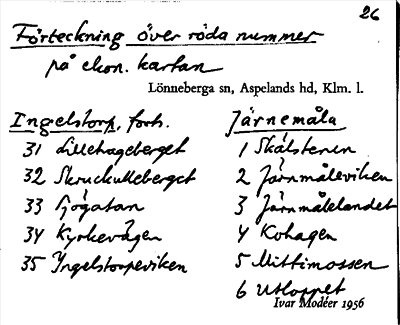 26
Förteckning över röda nummer
på ekon. kartan
Lönneberga sn, Aspelands hd, Klm. l.
Ingelstorp, forts.
31 Lillehageberget
32 Skruckulleberget
33 Sjögatan
34 Kyrkevägen
35 Yngelstorpeviken
Järnemåla
1 Skålstenen
2 Järnmåleviken
3 Järnmålelandet
4 Kohagen
5 Mittimossen
6 Utloppet
Ivar Modéer 1956